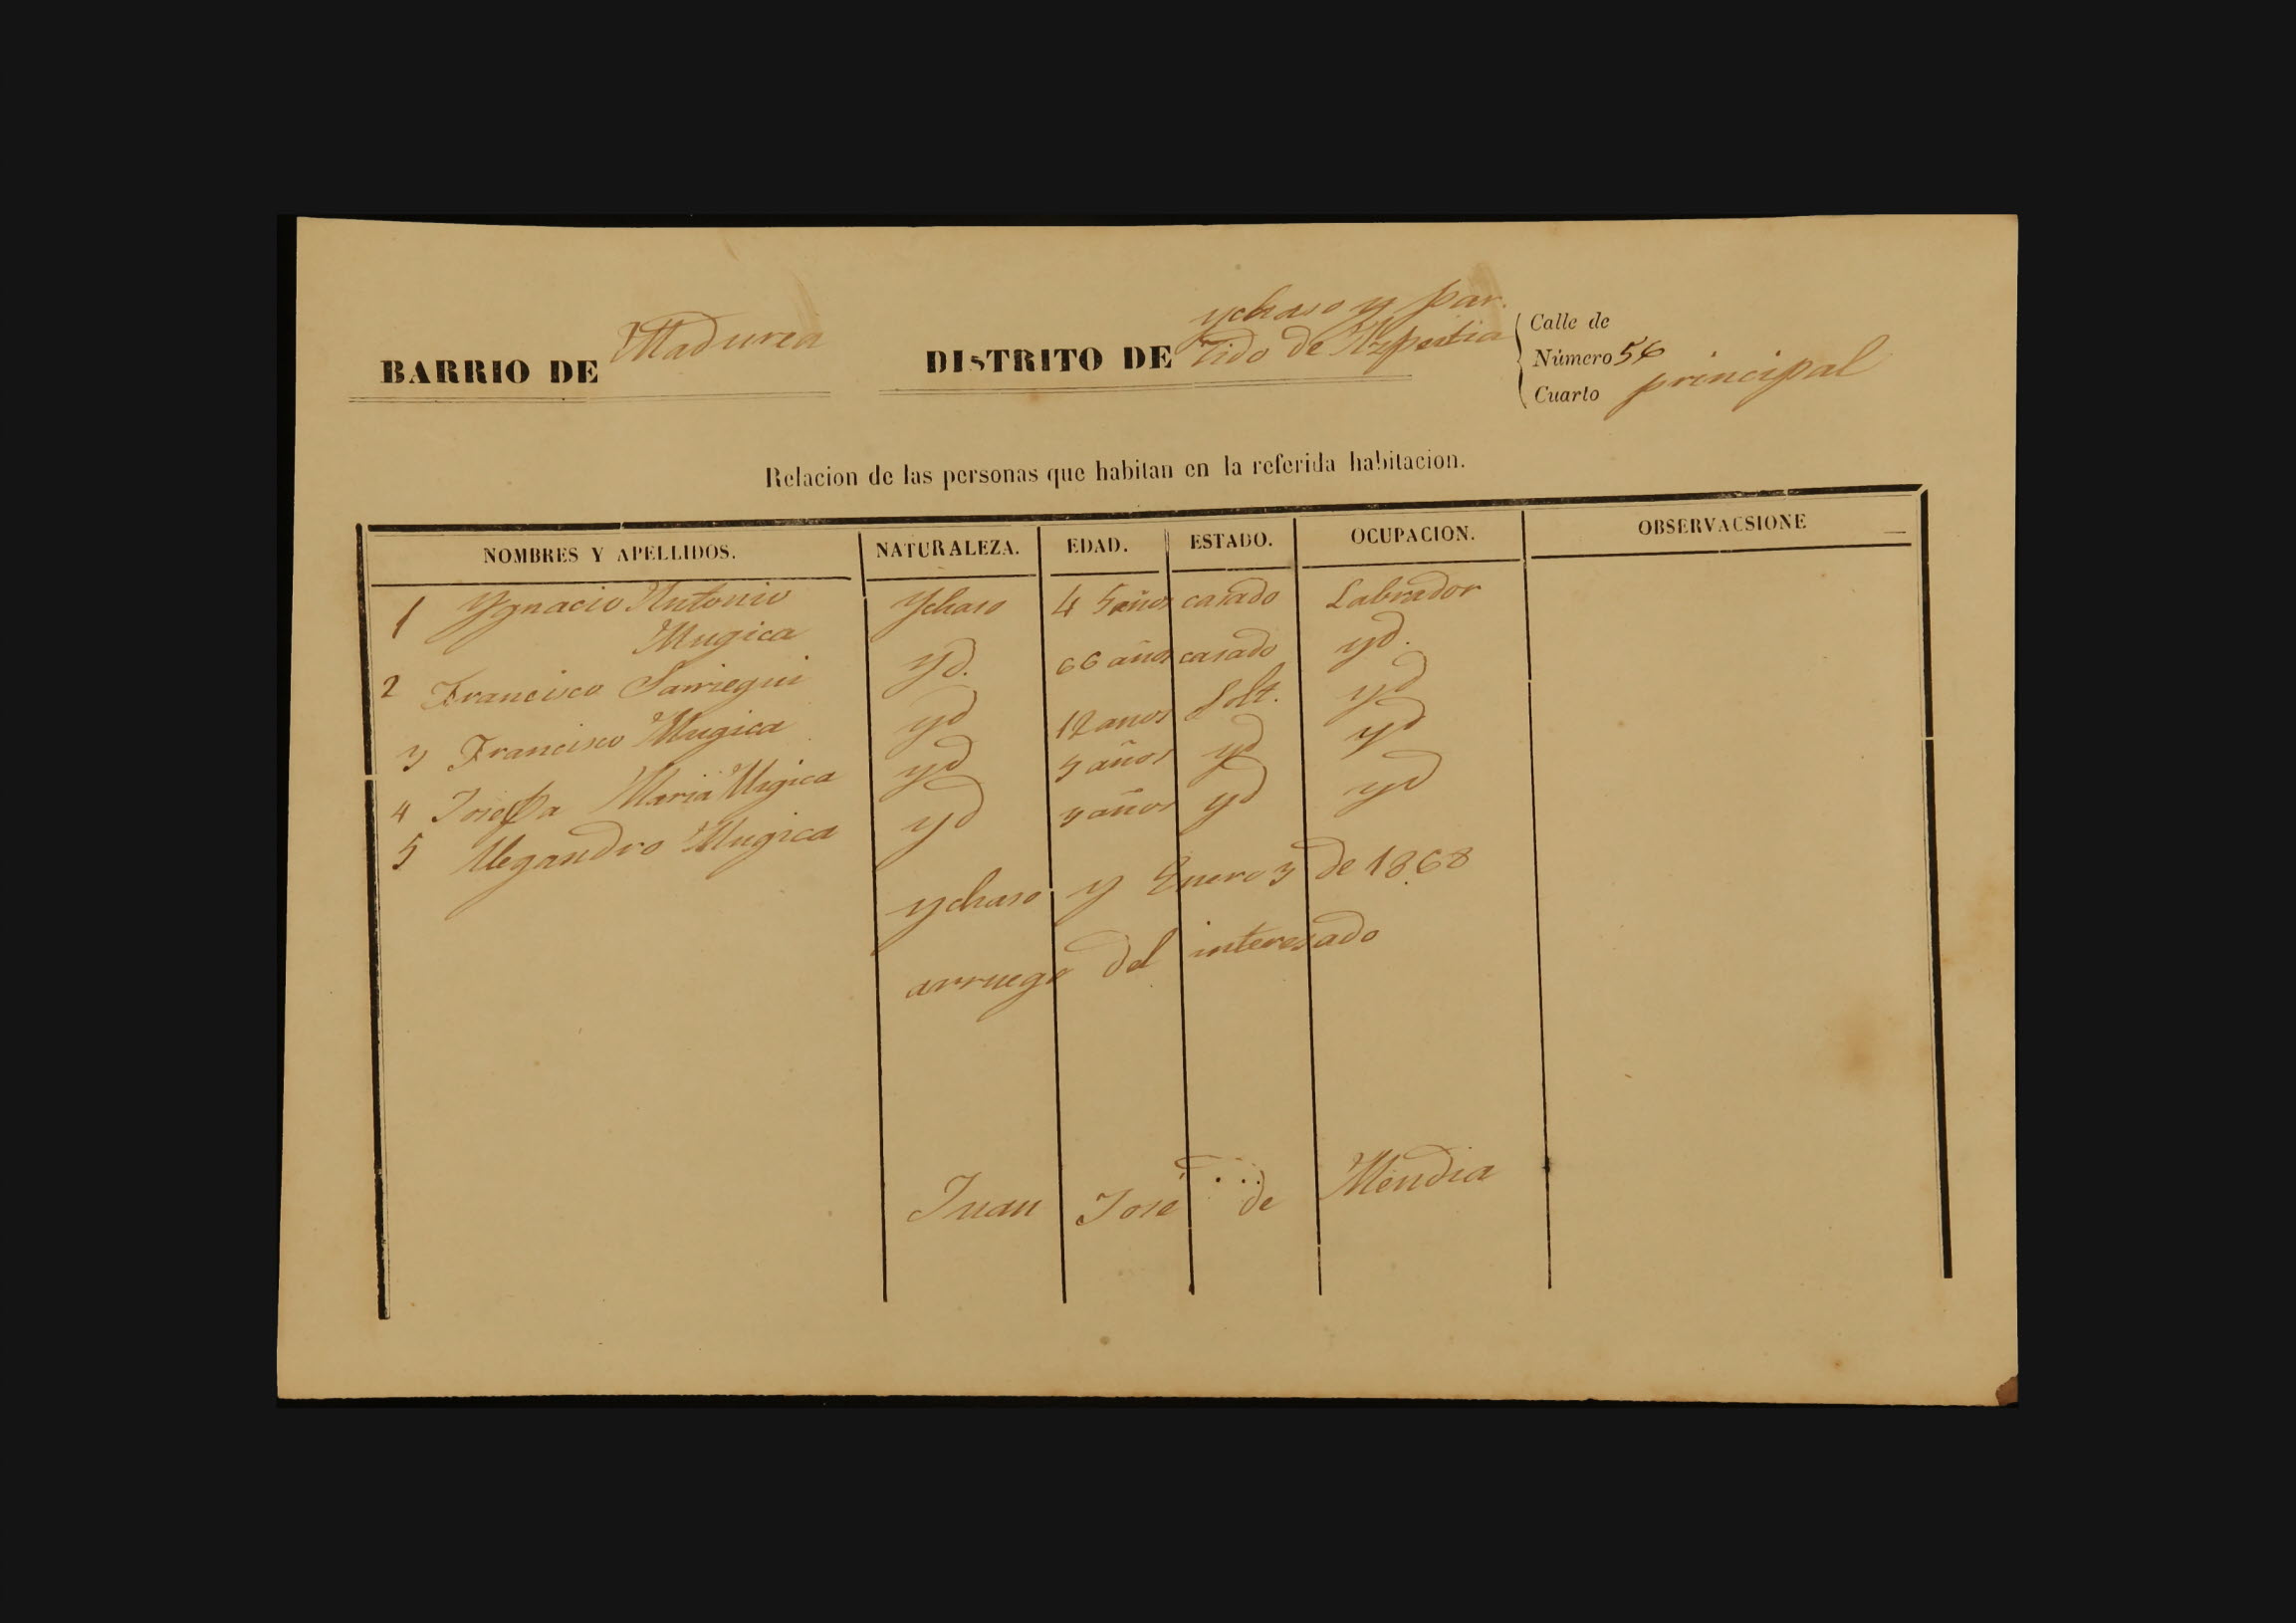 BARRIO DE Madurea
DISTRITO DE ychaso y par.
tido de Azpeitia
Calle de
Número 56
Cuarto principal
Relacion de las personas que habitan en la referida habitacion.
NOMBRES Y APELLIDOS. NATURALEZA. EDAD. ESTADO. OCUPACION. OBSERVACSIONE
1 Ygnacio Antonio Ychaso 45 años casado Labrador
Mugica
2 Francisco Sarriegui yd. 66 años casado yd.
3 Francisco Mugica yd 12 anos Solt. yd
4 Josefa Maria Mugica yd 5 años yd yd
5 Alegandro Mugica yd 3 años yd yd
ychaso y Enero 3 de 1868
arruego del interesado
Juan José de Mendia